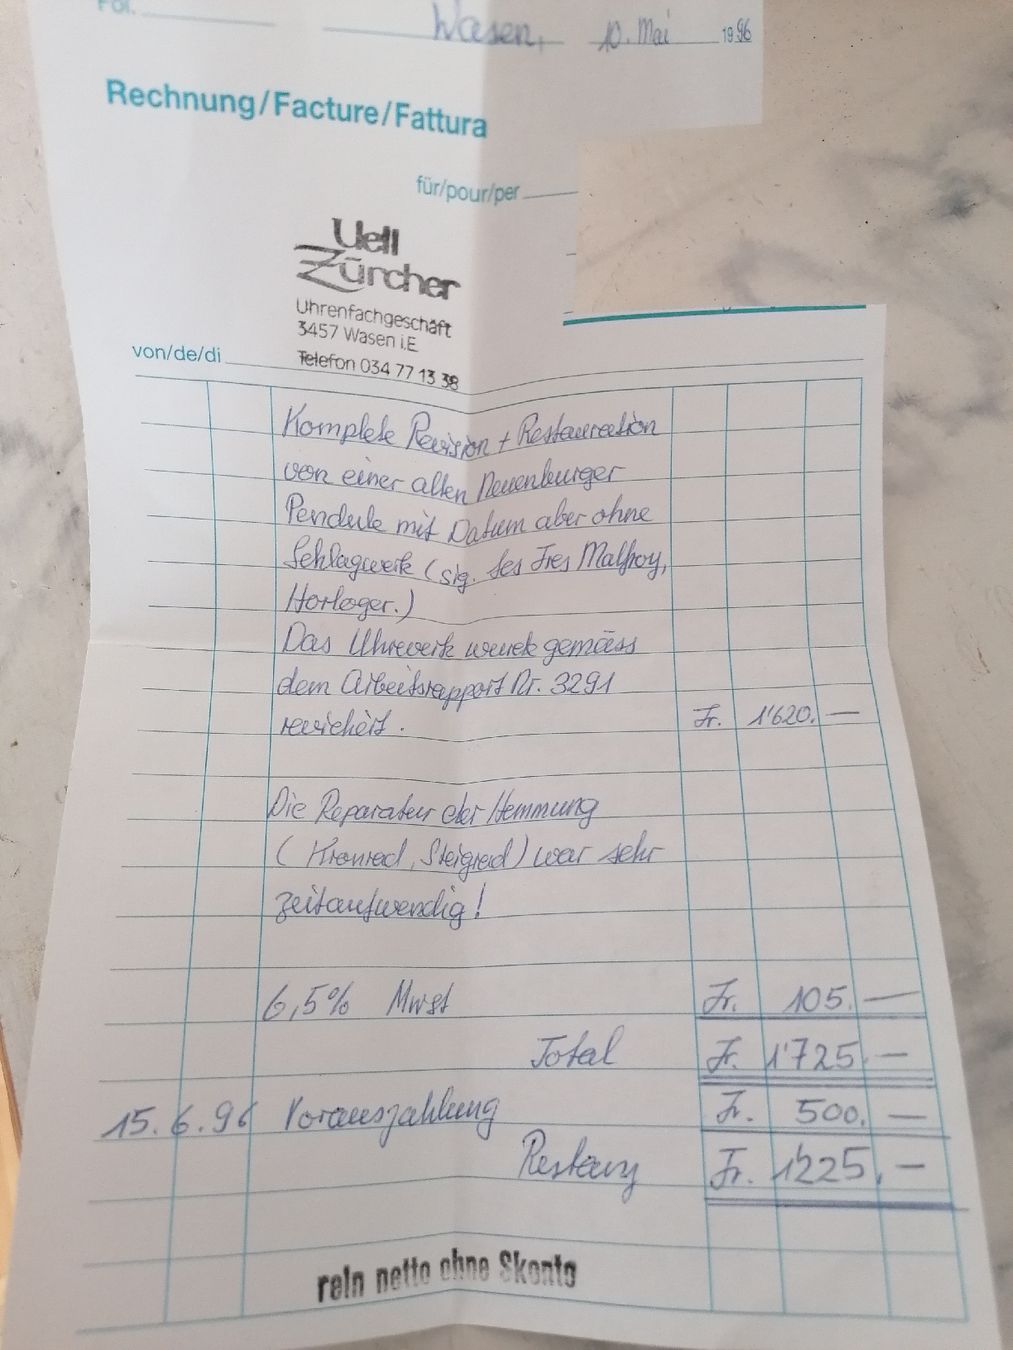 Fol.
Wasen, 10. Mai 1996
Rechnung/Facture/Fattura
für/pour/per
Ueli
Zürcher
Uhrenfachgeschäft
3457 Wasen i.E
Telefon 034 77 13 38
von/de/di
Komplete Revision + Restauration
von einer alten Neuenburger
Pendule mit Datum aber ohne
Schlagwerk (sig. les Fres Malfroy,
Horloger.)
Das Uhrwerk wurde gemäss
dem Arbeitsrapport Nr. 3291
revidiert. Fr. 1'620.—
Die Reparatur der Hemmung
(Kronrad, Steigrad) war sehr
zeitaufwendig!
6,5% Mwst Fr. 105.—
Total Fr. 1'725.—
15.6.96 Vorauszahlung Fr. 500.—
Restanz Fr. 1'225.—
rein netto ohne Skonto